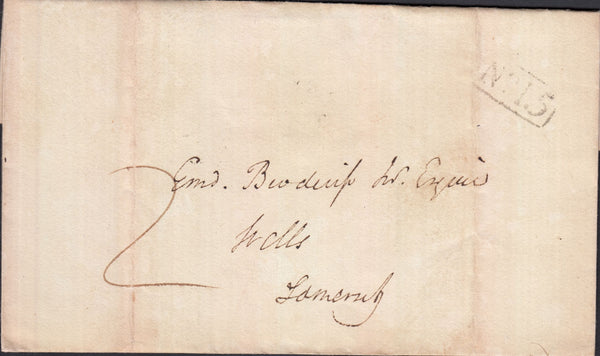 No. 15
Edmd. Broderip Jr. Esquire
Wells
2
Somerset